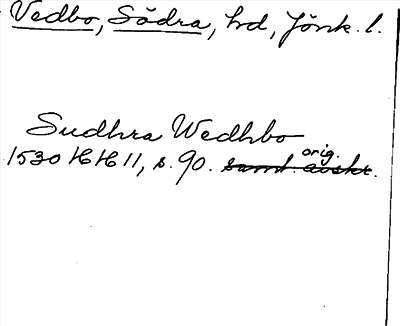 Vedbo, Södra, hd, Jönk. l.
Sudhra Wedhbo
orig.
1530 HH 11, s. 90. samt. avskr.